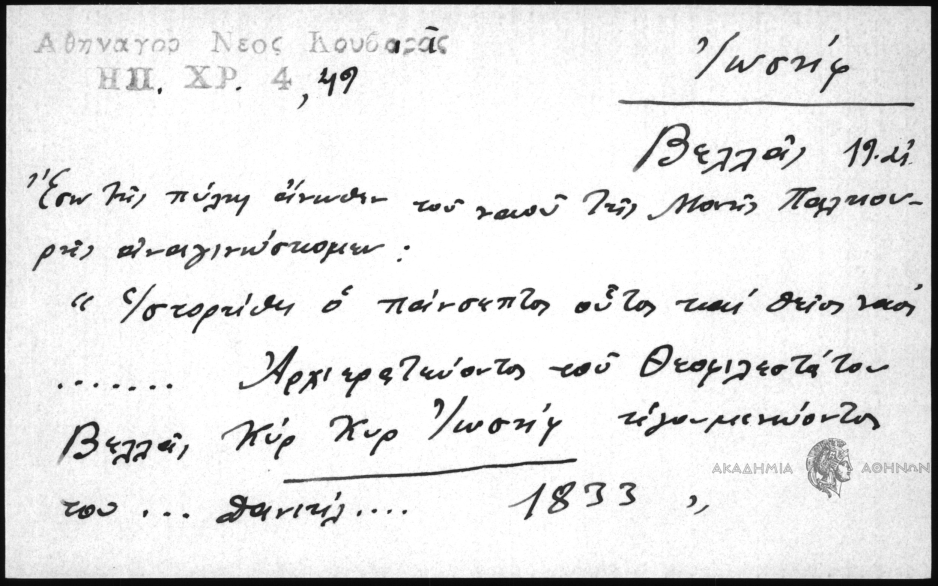 Αθηναγορ Νεος Κουβαρᾶς
ΗΠ. ΧΡ. 4, 49
Ἰωσήφ
Βελλᾶς 19.
Ἔσω τῆς πύλης ἄνωθεν τοῦ ναοῦ τῆς Μονῆς Παλιου-
ρῆς ἀναγινώσκομεν :
“ Ἱστορήθη ὁ πάνσεπτος οὗτος καί θεῖος ναός
....... Ἀρχιερατεύοντος τοῦ Θεοφιλεστάτου
Βελλᾶς Κύρ Κυρ Ἰωσήφ ἡγουμενεύοντος
του ... θανιήλ.... 1833 „
ΑΚΑΔΗΜΙΑ ΑΘΗΝΩΝ